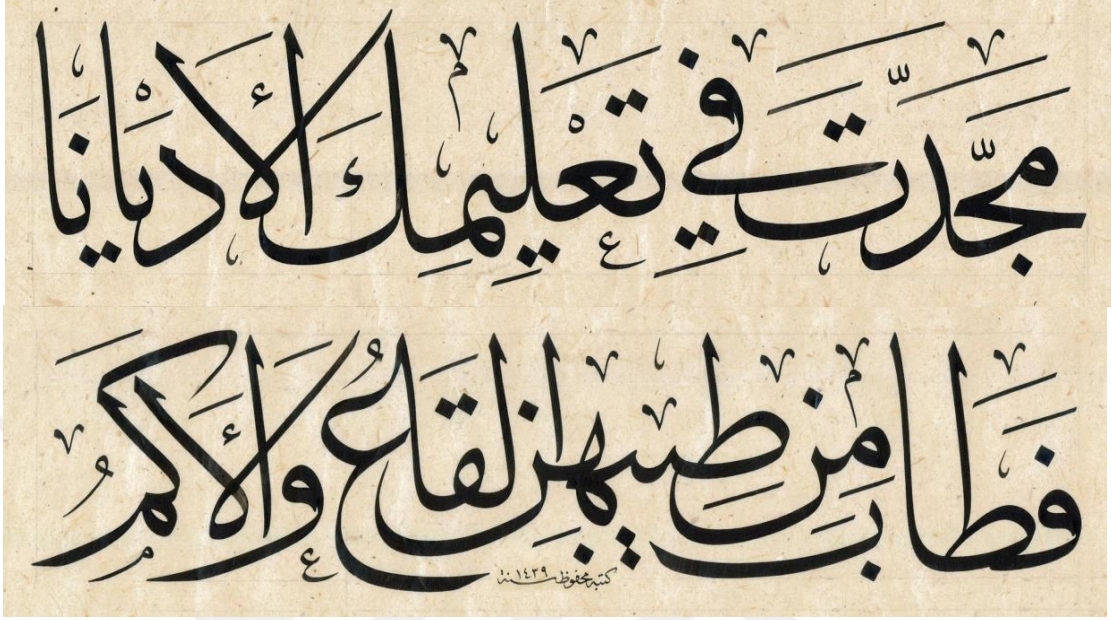 مَجَّدتَّ فِي تَعْلِيمِكَ الأَدْيَانَا
فَطَابَ مِن طِيبِهِنَّ القَاعُ وَالأَكَمُ
كتبه محفوظ سنة ١٤٣٩